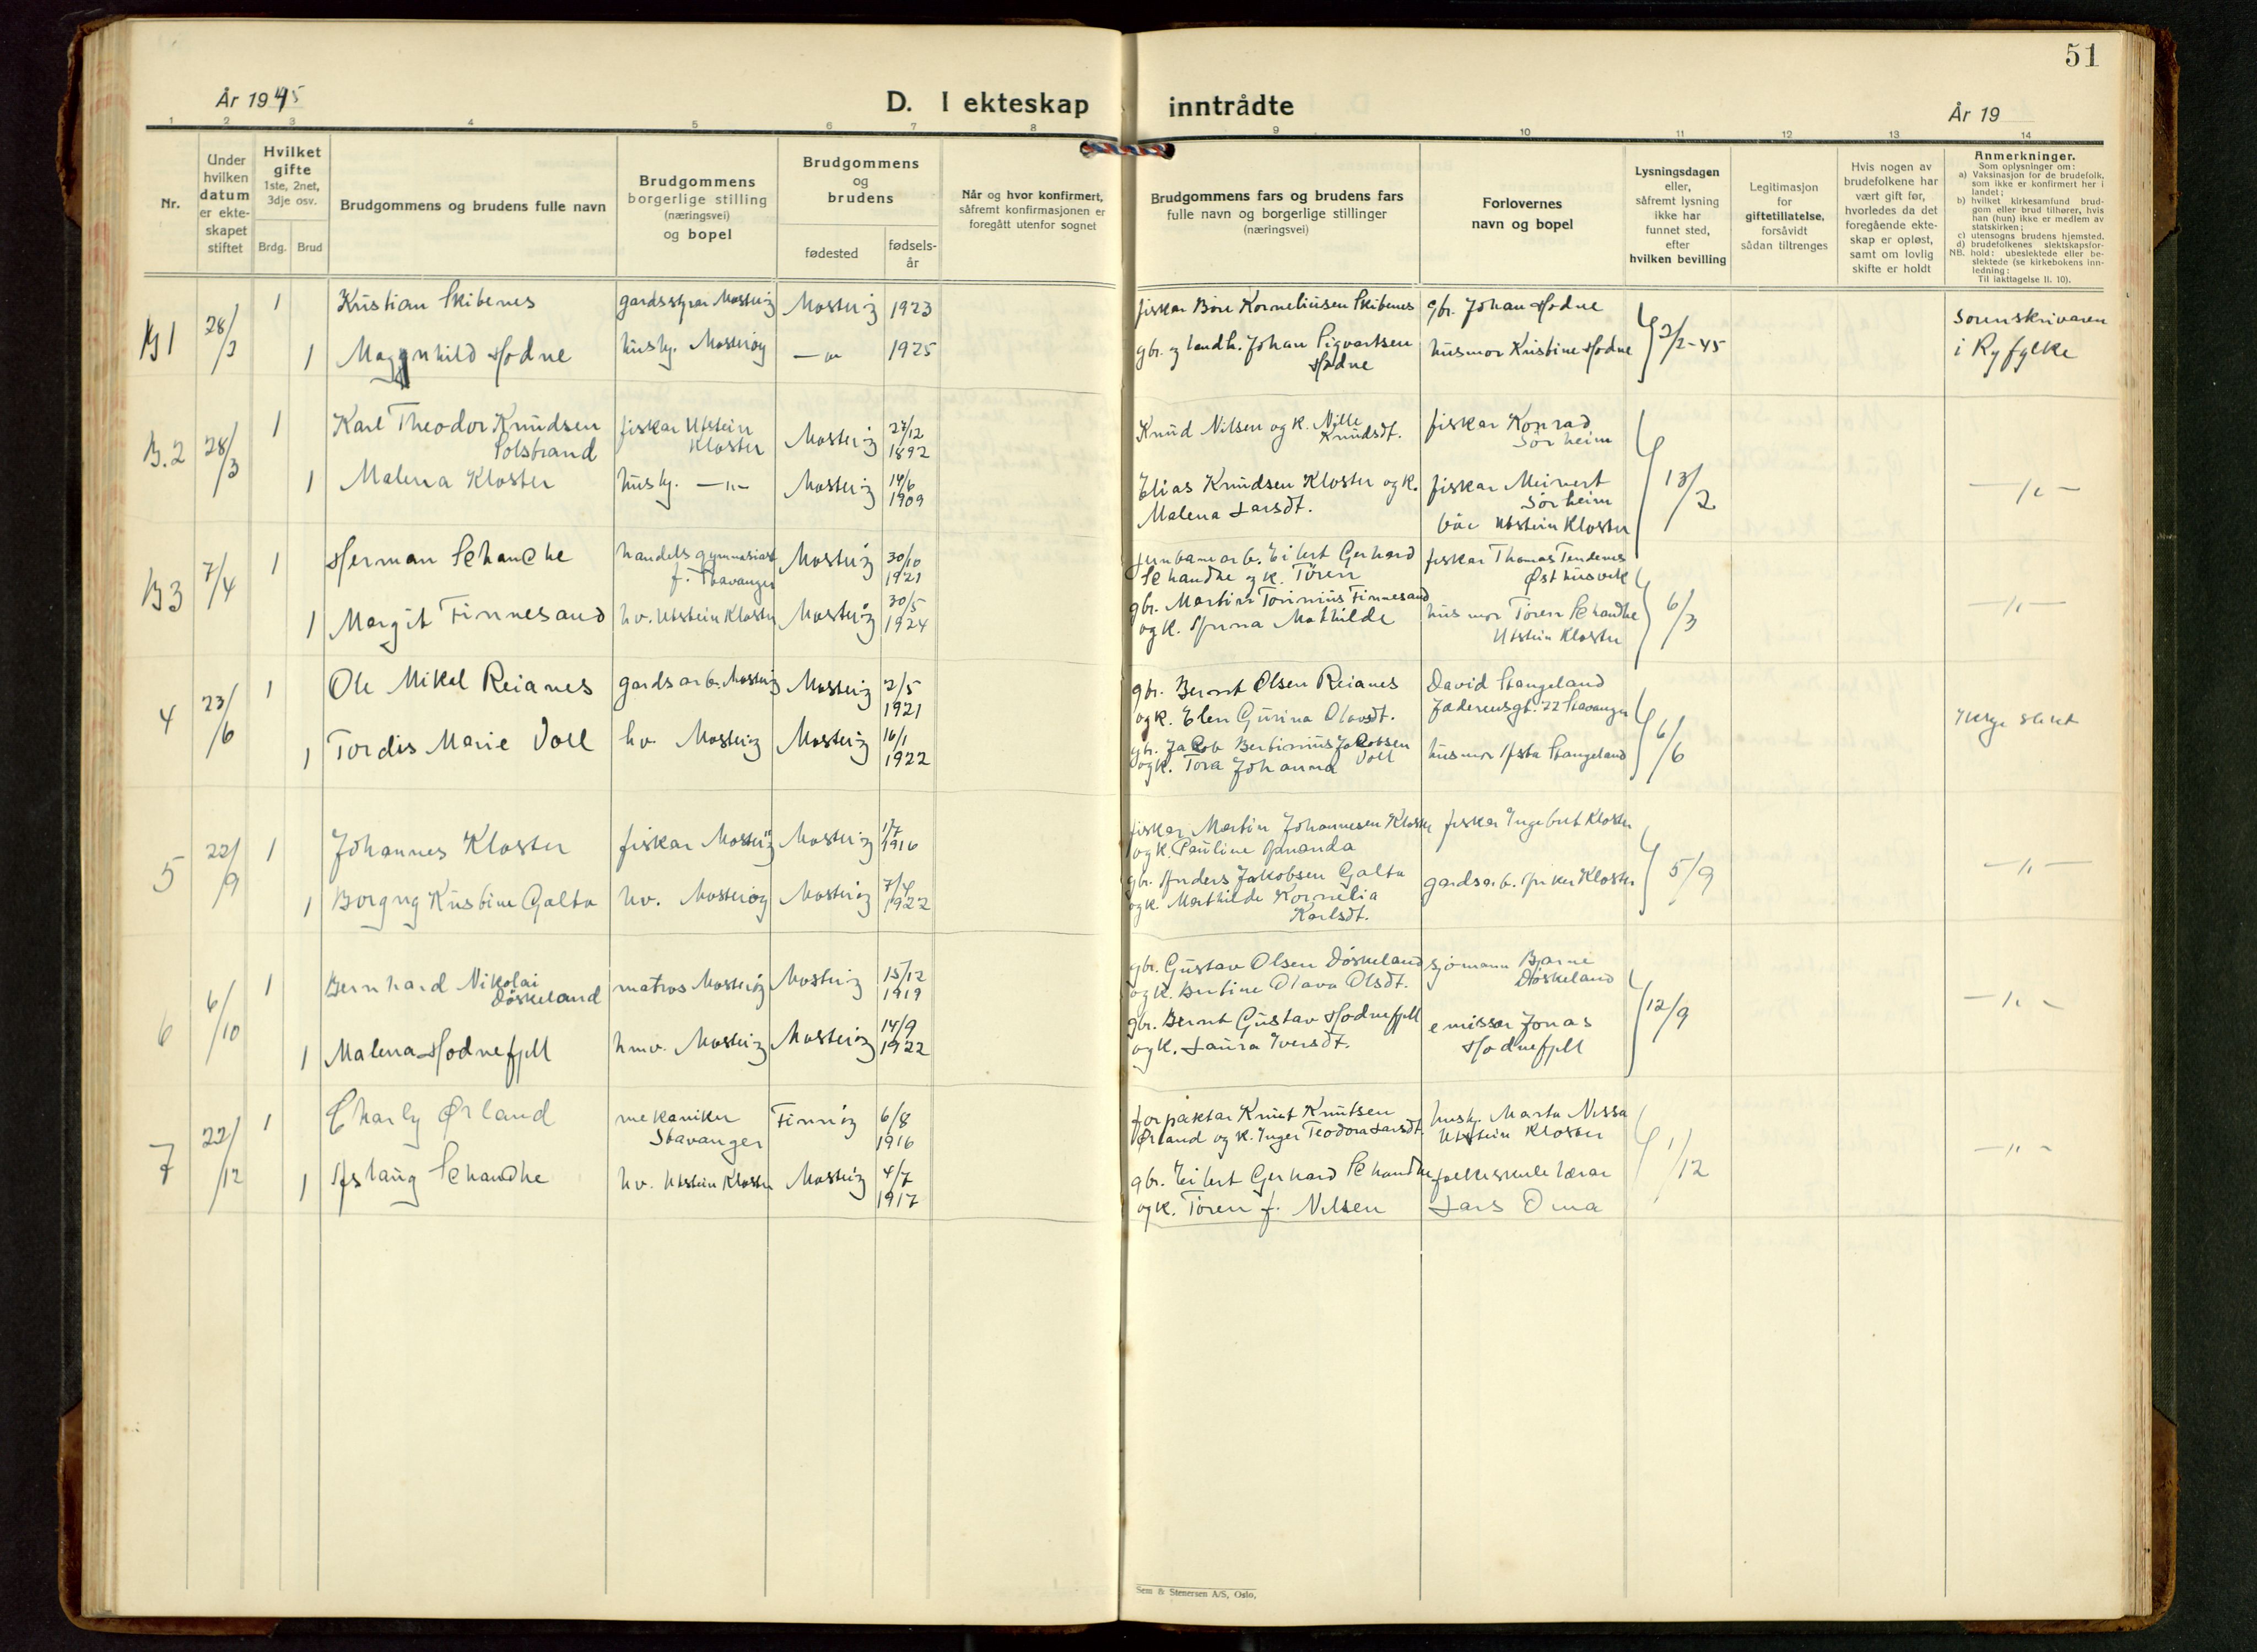 51
År 1945
D. I ekteskap inntrådte
År 19
1 2 3 4 5 6 7 8 9 10 11 12 13 14
Nr.
Under hvilken datum er ekte-skapet stiftet
Hvilket gifte 1ste, 2net, 3dje osv.
Brdg. Brud
Brudgommens og brudens fulle navn
Brudgommens borgerlige stilling (næringsvei) og bopel
Brudgommens og brudens
fødested
fødsels-år
Når og hvor konfirmert, såfremt konfirmasjonen er foregått utenfor sognet
Brudgommens fars og brudens fars fulle navn og borgerlige stillinger (næringsvei)
Forlovernes navn og bopel
Lysningsdagen eller, såfremt lysning ikke har funnet sted, efter hvilken bevilling
Legitimasjon for giftetillatelse, forsåvidt sådan tiltrenges
Hvis nogen av brudefolkene har vært gift før, hvorledes da det foregående ekte-skap er opløst, samt om lovlig skifte er holdt
Anmerkninger.
Som oplysninger om:
a) Vaksinasjon for de brudefolk, som ikke er konfirmert her i landet;
b) hvilket kirkesamfund brud-gom eller brud tilhører, hvis han (hun) ikke er medlem av statskirken;
c) utensogns brudens hjemsted.
d) brudefolkenes slektskapsfor-hold: ubeslektede eller be-slektede (se kirkebokens inn-ledning:
NB. Til iakttagelse II. 10).
B1 28/3 1 Kristian Skibenes gardsstyrar Mosterøy Mosterøy 1923 fiskar Bore Korneliusen Skibenes gbr. Johan Hodne 2/2-45 Sorenskrivaren i Ryfylke
1 Magnhild Hodne hushj. Mosterøy —"— 1925 gbr. og landh. Johan Sigvartsen Hodne husmor Kristine Hodne
B.2 28/3 1 Karl Theodor Knudsen Solstrand fiskar Utstein Kloster Mosterøy 27/12 1892 Knud Nilsen og k. Nille Knudsdt. fiskar Konrad Sørheim 13/2 —"—
1 Malena Kloster hushj. —"— Mosterøy 14/6 1909 Elias Knudsen Kloster og k. Malena Larsdt. fiskar Meinert Sørheim båe Utstein Kloster
B3 7/4 1 Herman Schandhe handelsgymnasiast f. Stavanger Mosterøy 30/10 1921 jernbanearb. Eilert Gerhard Schandhe og k. Tøren fiskar Thomas Tendenes Østhusvik 6/3 —"—
1 Margit Finnesand hv. Utstein Kloster Mosterøy 30/5 1924 gbr. Martin Tonnius Finnesand og k. Anna Mathilde husmor Tøren Schandhe Utstein Kloster
4 23/6 1 Ole Mikal Reianes gardsarb. Mosterøy Mosterøy 2/5 1921 gbr. Bernt Olsen Reianes og k. Elen Gurina Olavsdt. David Stangeland Jæderensgt. 22 Stavanger 6/6 Ikkje slekt
1 Tordis Marie Voll hv. Mosterøy Mosterøy 16/1 1922 gbr. Jakob Bertinius Jakobsen Voll og k. Tora Johanna husmor Asta Stangeland
5 22/9 1 Johannes Kloster fiskar Mosterøy Mosterøy 1/7 1916 fiskar Martin Johannesen Kloster og k. Pauline Amanda fiskar Ingebret Kloster 5/9 —"—
1 Borgny Kristine Galta hv. Mosterøy Mosterøy 7/4 1922 gbr. Anders Jakobsen Galta og k. Mathilde Kornelia Karlsdt. gardsarb. Anker Kloster
6 6/10 1 Bernhard Nikolai Døskeland matros Mosterøy Mosterøy 15/12 1919 gbr. Gustav Olsen Døskeland og k. Bertine Olava Olsdt. sjømann Bjarne Døskeland 12/9 —"—
1 Malena Hodnefjell hmv. Mosterøy Mosterøy 14/9 1922 gbr. Bernt Gustav Hodnefjell og k. Laura Iversdt. emissær Jonas Hodnefjell
7 22/12 1 Charly Ørland mekaniker Stavanger Finnøy 6/8 1916 forpaktar Knut Knutsen Ørland og k. Inger Teodora Larsdt. hushj. Marta Nessa Utstein Kloster 1/12 —"—
1 Aslaug Schandhe hv. Utstein Kloster Mosterøy 4/7 1917 gbr. Eilert Gerhard Schandhe og k. Tøren f. Nilsen folkeskulelærar Lars Oma
Sem & Stenersen A/S, Oslo.